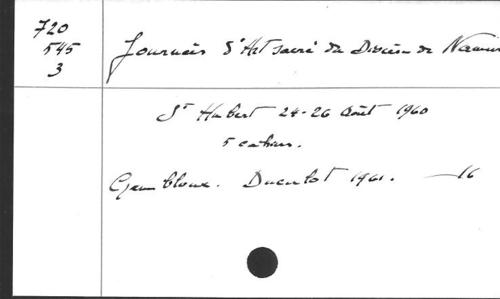 720
545
3
Journées d'Art sacré du Diocèse de Namur
St Hubert 24-26 Août 1960
5 cahiers.
Gembloux. Duculot 1961. — 16